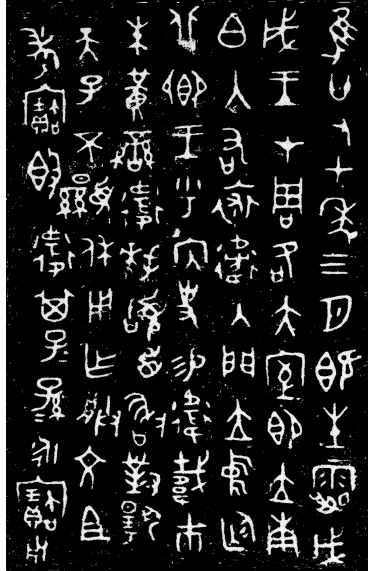 隹廿又七年三月既生霸戊
戌王才周各大室即立南
白入右裘衛入門立中廷
北鄉王乎內史易衛載市
朱黃䜌衛拜𩒨首敢對揚
天子不顯休用乍朕文且
考寶簋衛其子子孫孫永寶用